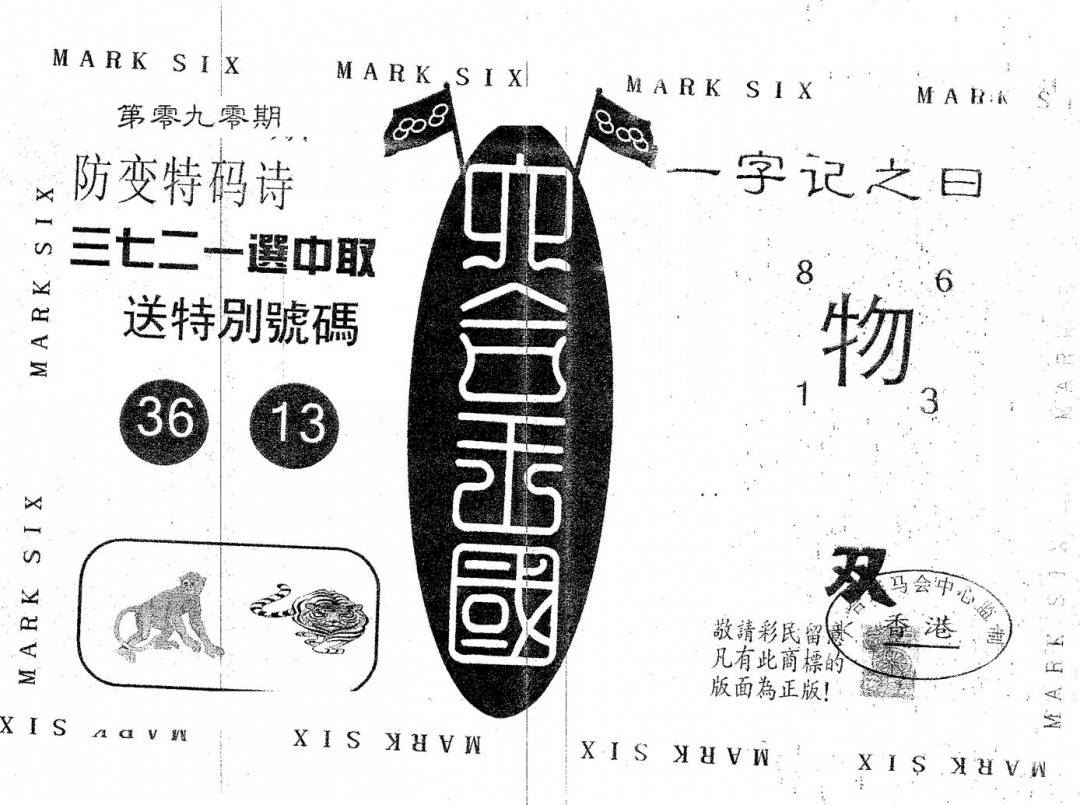 MARK SIX
MARK SIX
MARK SIX
MARK S
第零九零期
防变特码诗
三七二一選中取
送特別號碼
36 13
MARK SIX
MARK SIX
六合王國
一字记之曰
8 6
物
1 3
双
马会中心监制
香港
敬請彩民留意
凡有此商標的
版面為正版!
MARK SIX
MARK SIX
MARK SIX
MARK SIX
MARK SIX